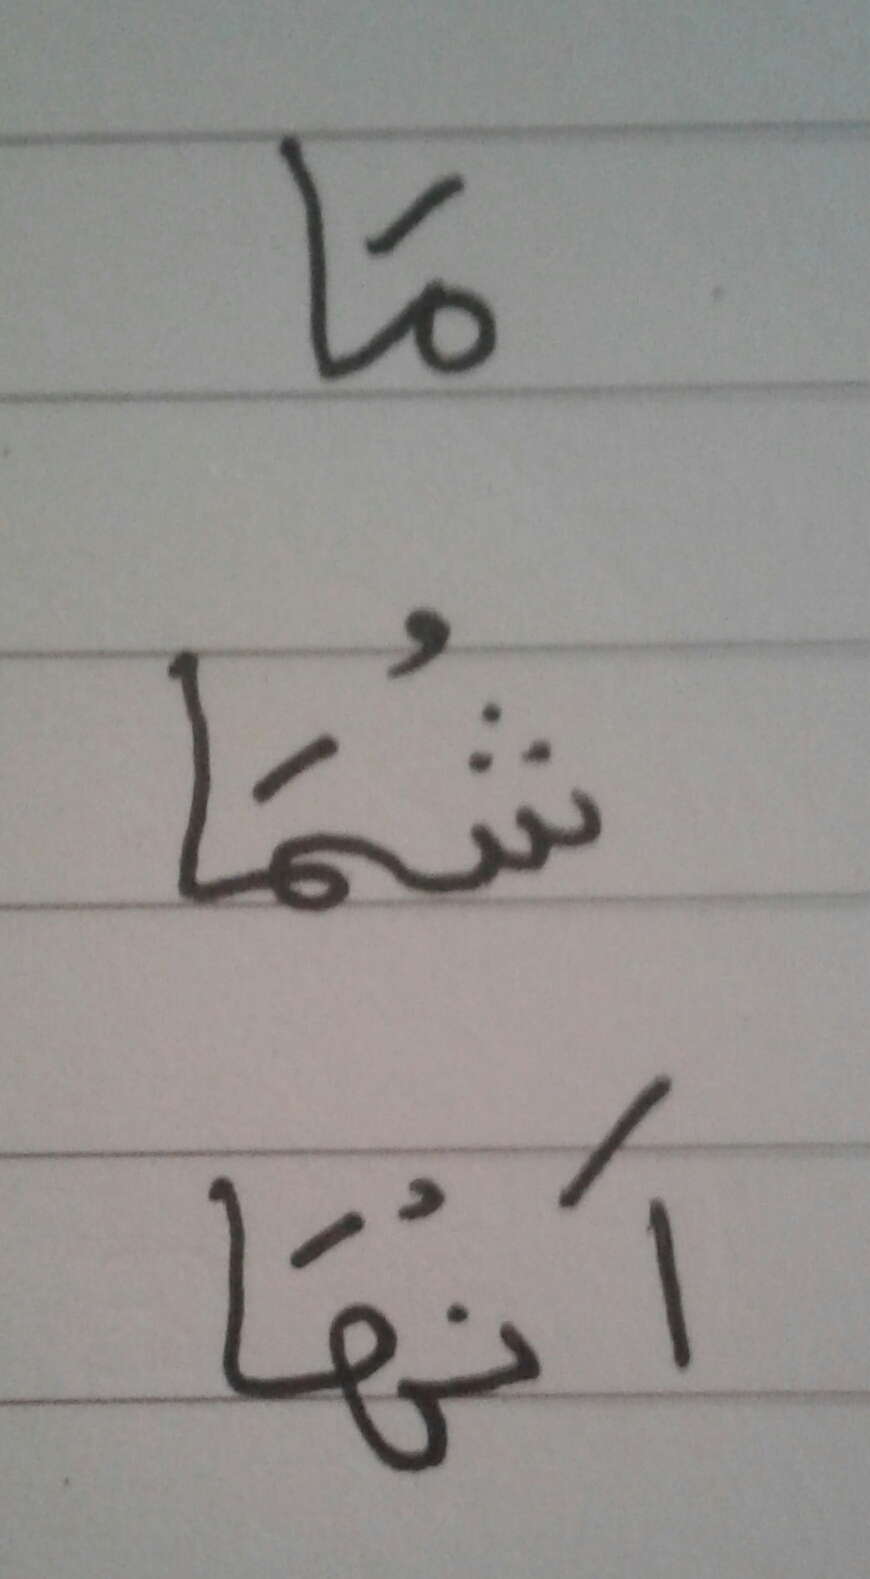 مَا
شُمَا
اَنُهَا